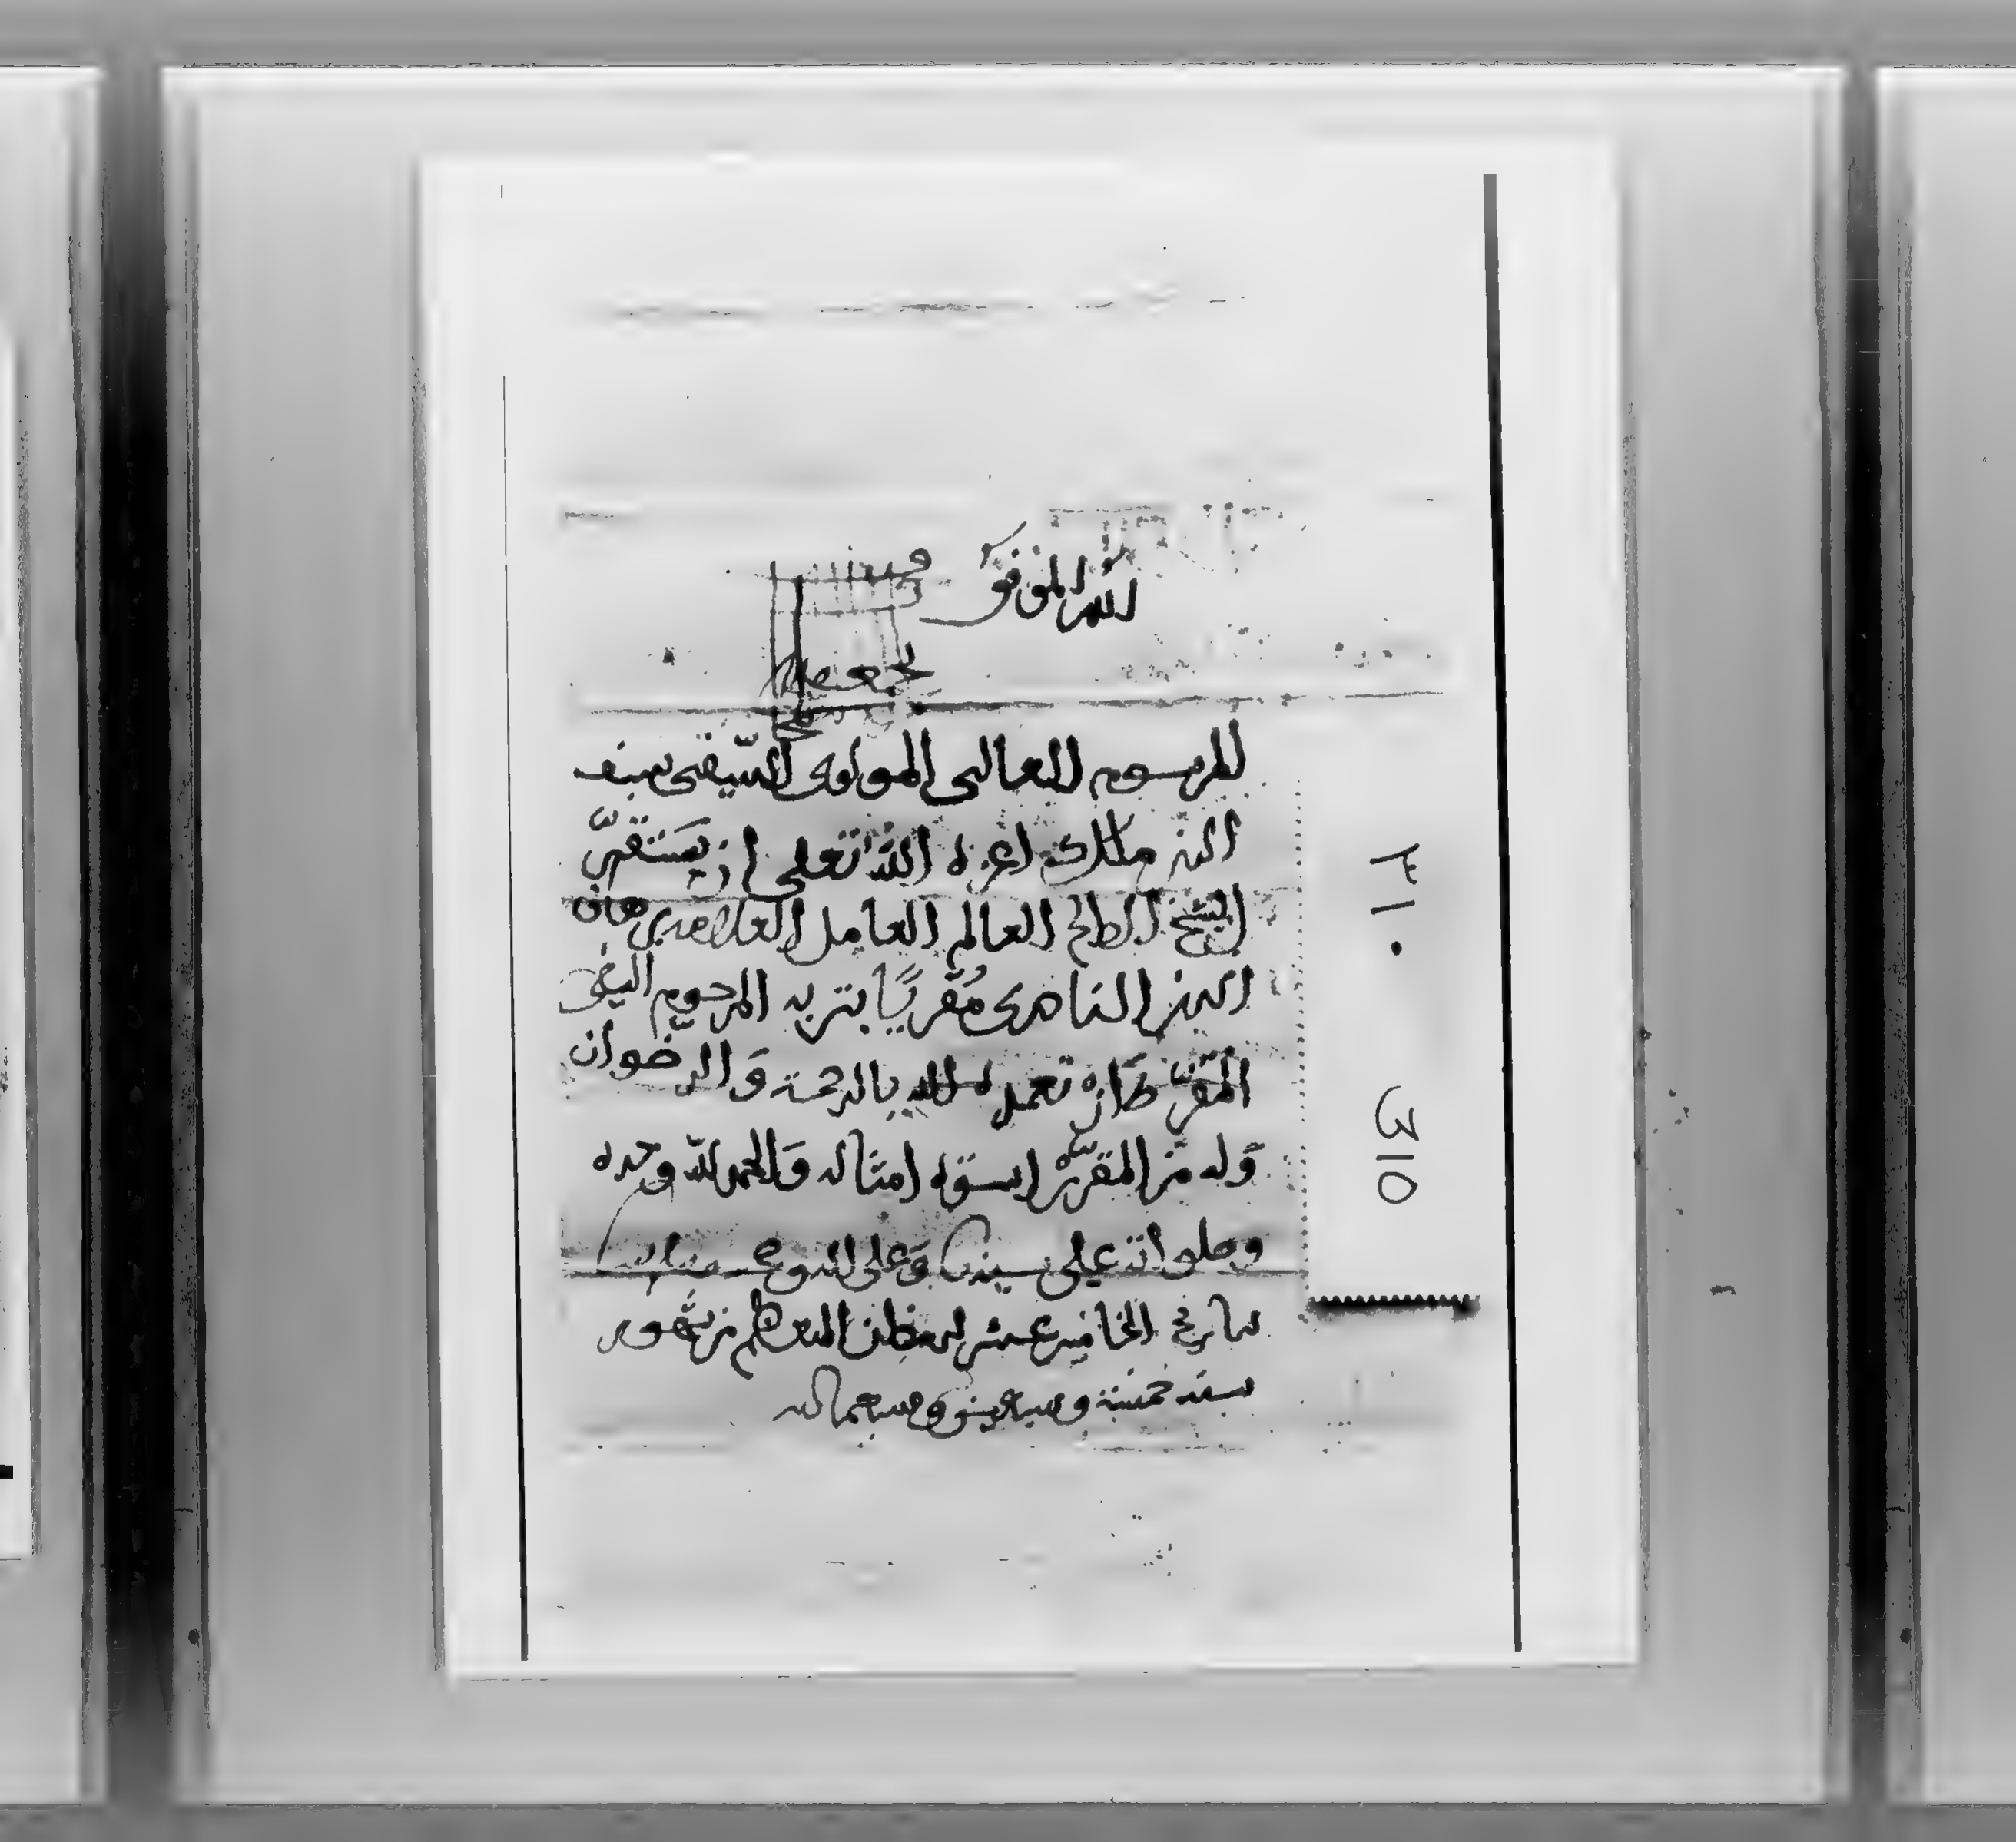 الله الموفق
المرسوم العالي المولوي السيفي سيف
الدين ملك اعزه الله تعلى ان يستقرّ
الشيخ الصالح العالم العامل برهان
الدين الناصري مُقريًا بتربه المرحوم السيفي
المقرّ طاز تغمده الله بالرحمة وَالرضوان
وَله من المقرّر اسوة امثاله وَالحمد لله وحده
وصلواته على سيدنا وَعلى
بتاريخ الخامس عشر رمضان المعظم من شهور
سنه خمسة وسبعين وسبعمائه
٣١٠
310